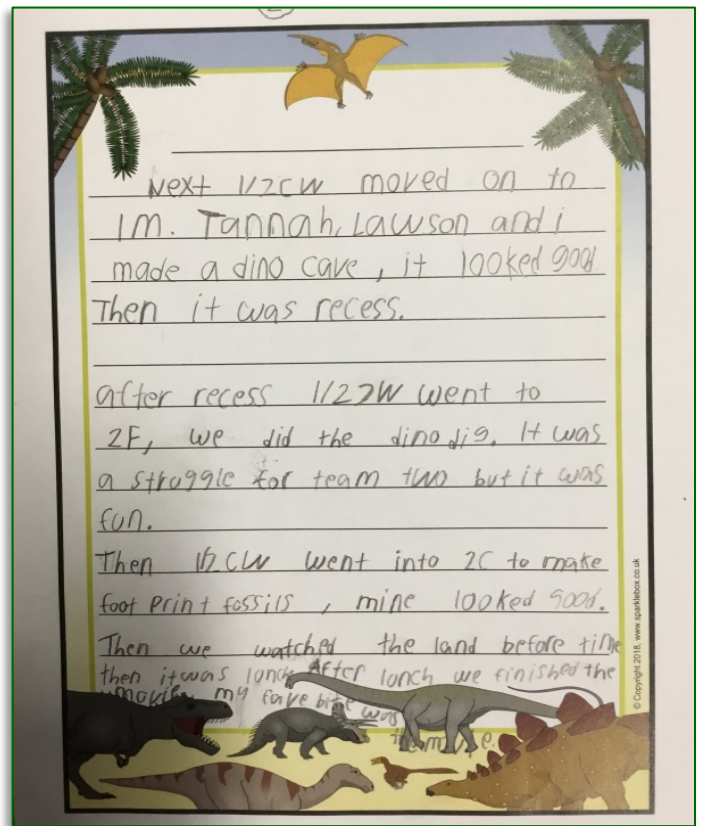 Next 1/2CW moved on to
1M. Tannah, Lawson and i
made a dino cave, it looked good
Then it was recess.
after recess 1/22W went to
2F, we did the dino dig. It was
a struggle for team two but it was
fun.
Then 1/2CW went into 2C to make
foot print fossils, mine looked good.
Then we watched the land before time
then it was lunch After lunch we finished the
movie, my fave bite was
the movie.
© Copyright 2018, www.sparklebox.co.uk